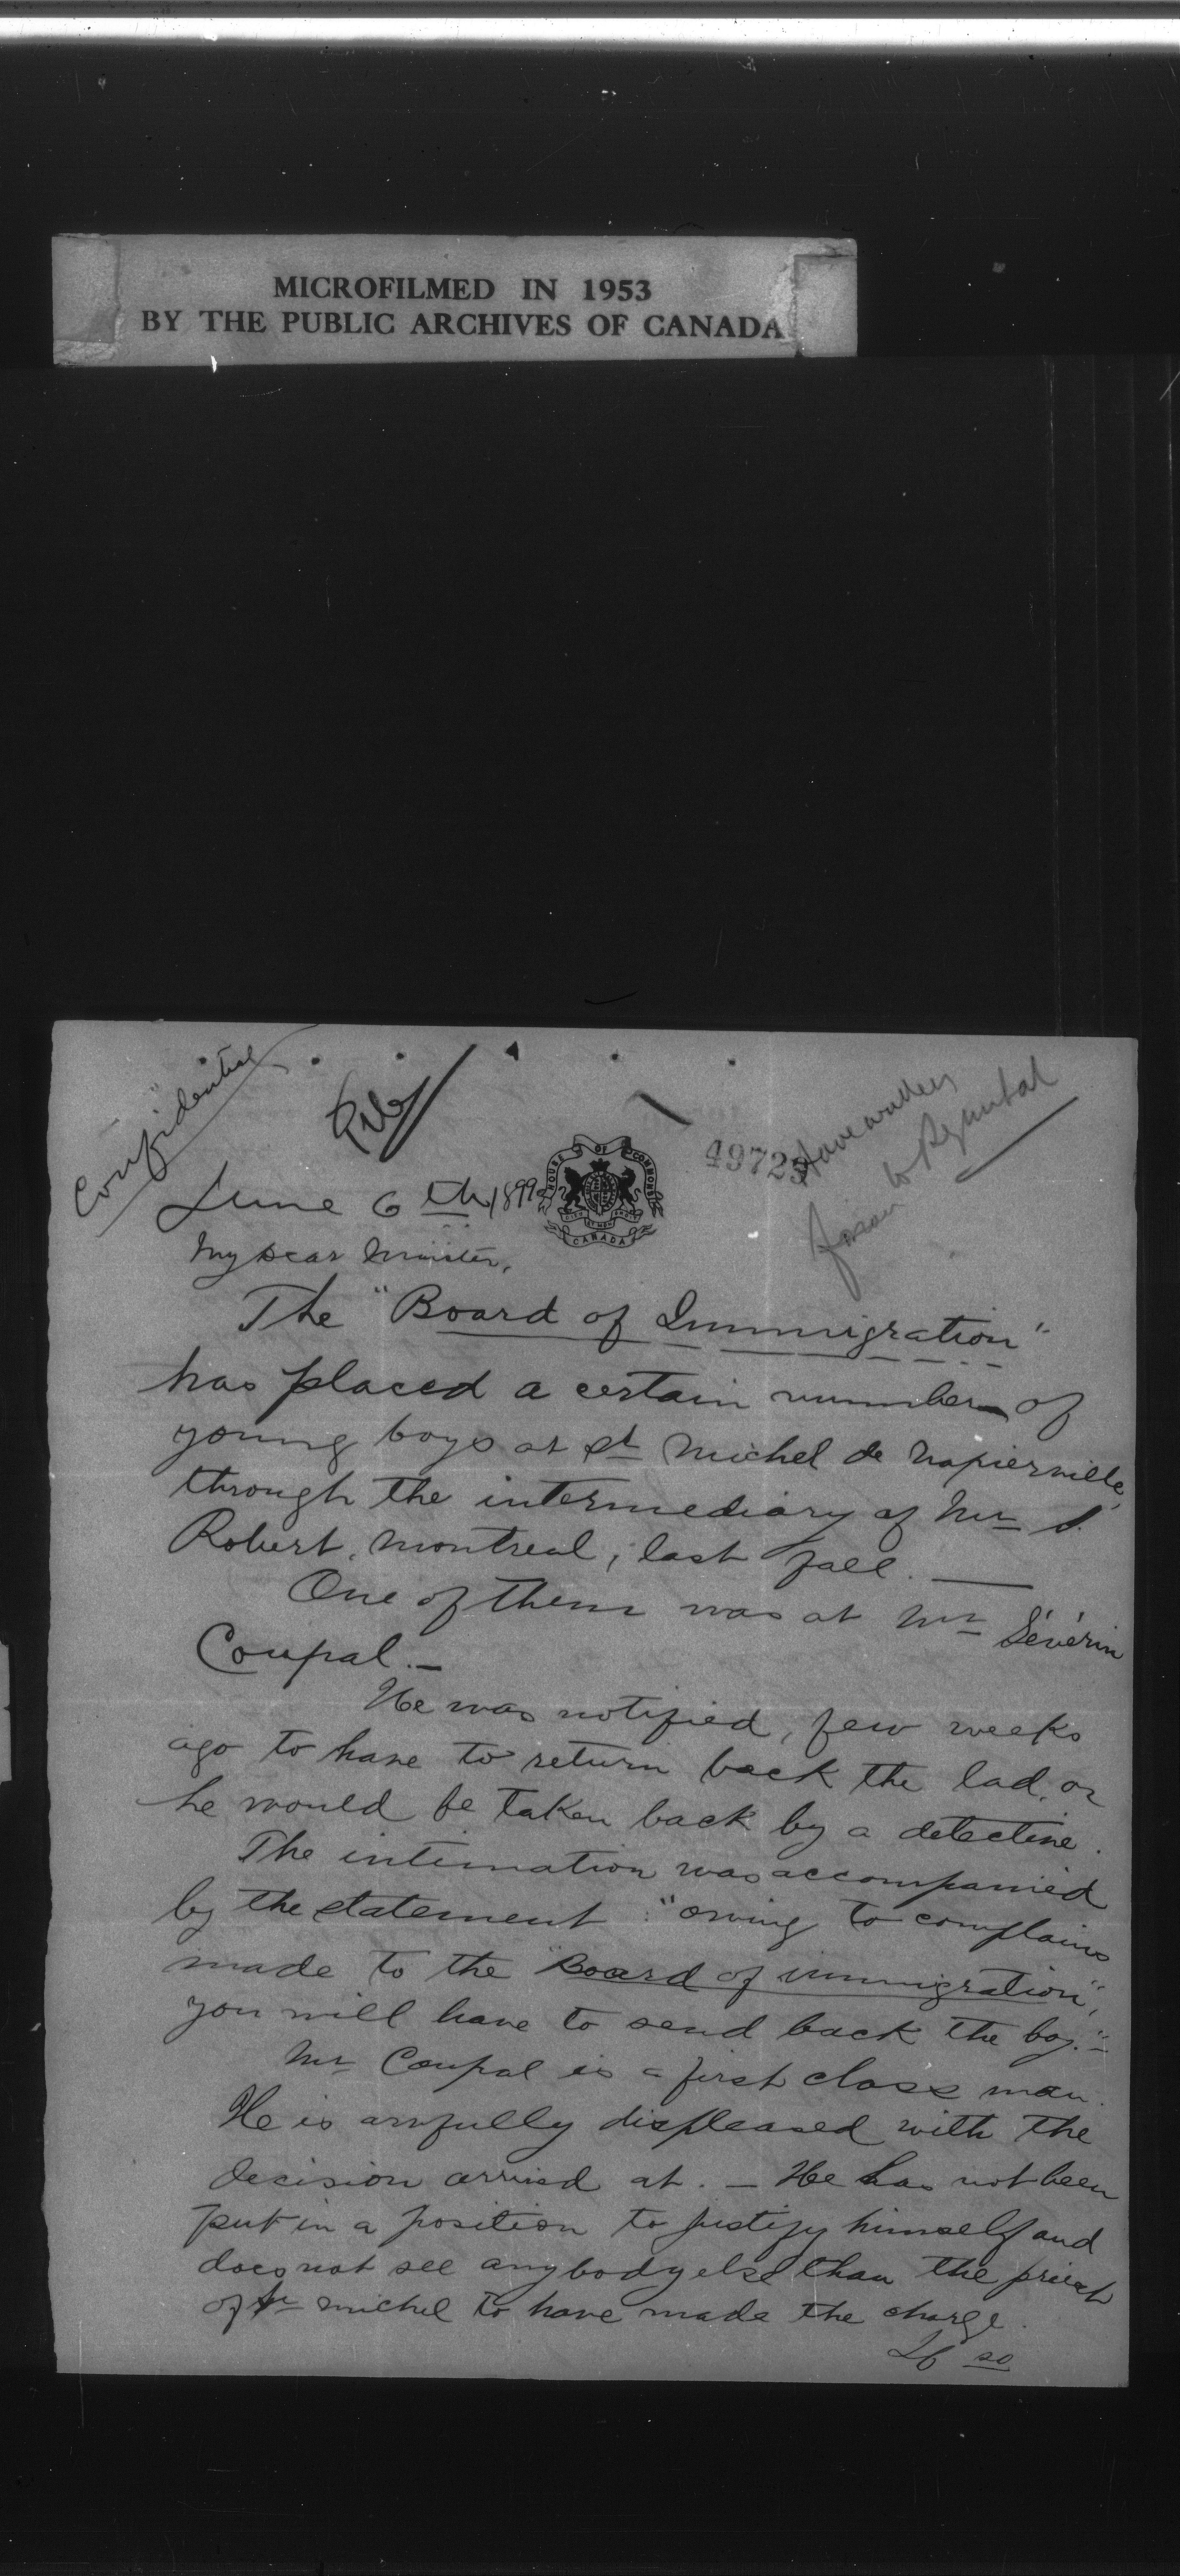 MICROFILMED IN 1953
BY THE PUBLIC ARCHIVES OF CANADA
Confidential
File
49725
Have written
to Regimbal
HOUSE OF COMMONS
CANADA
June 6th, 1899
My Dear Minister,
The "Board of Immigration"
has placed a certain number of
young boys at St Michel de Napierville,
through the intermediary of Mr S.
Robert, Montreal, last fall. —
One of them was at Mr Séverin
Coupal. —
He was notified, few weeks
ago to have to return back the lad, or
he would be taken back by a detective.
The intimation was accompanied
by the statement: "owing to complains
made to the "Board of immigration",
you will have to send back the boy." —
Mr Coupal is a first class man.
He is awfully displeased with the
decision arrived at. — He has not been
put in a position to justify himself and
does not see anybody else than the priest
of St Michel to have made the charge.
If so